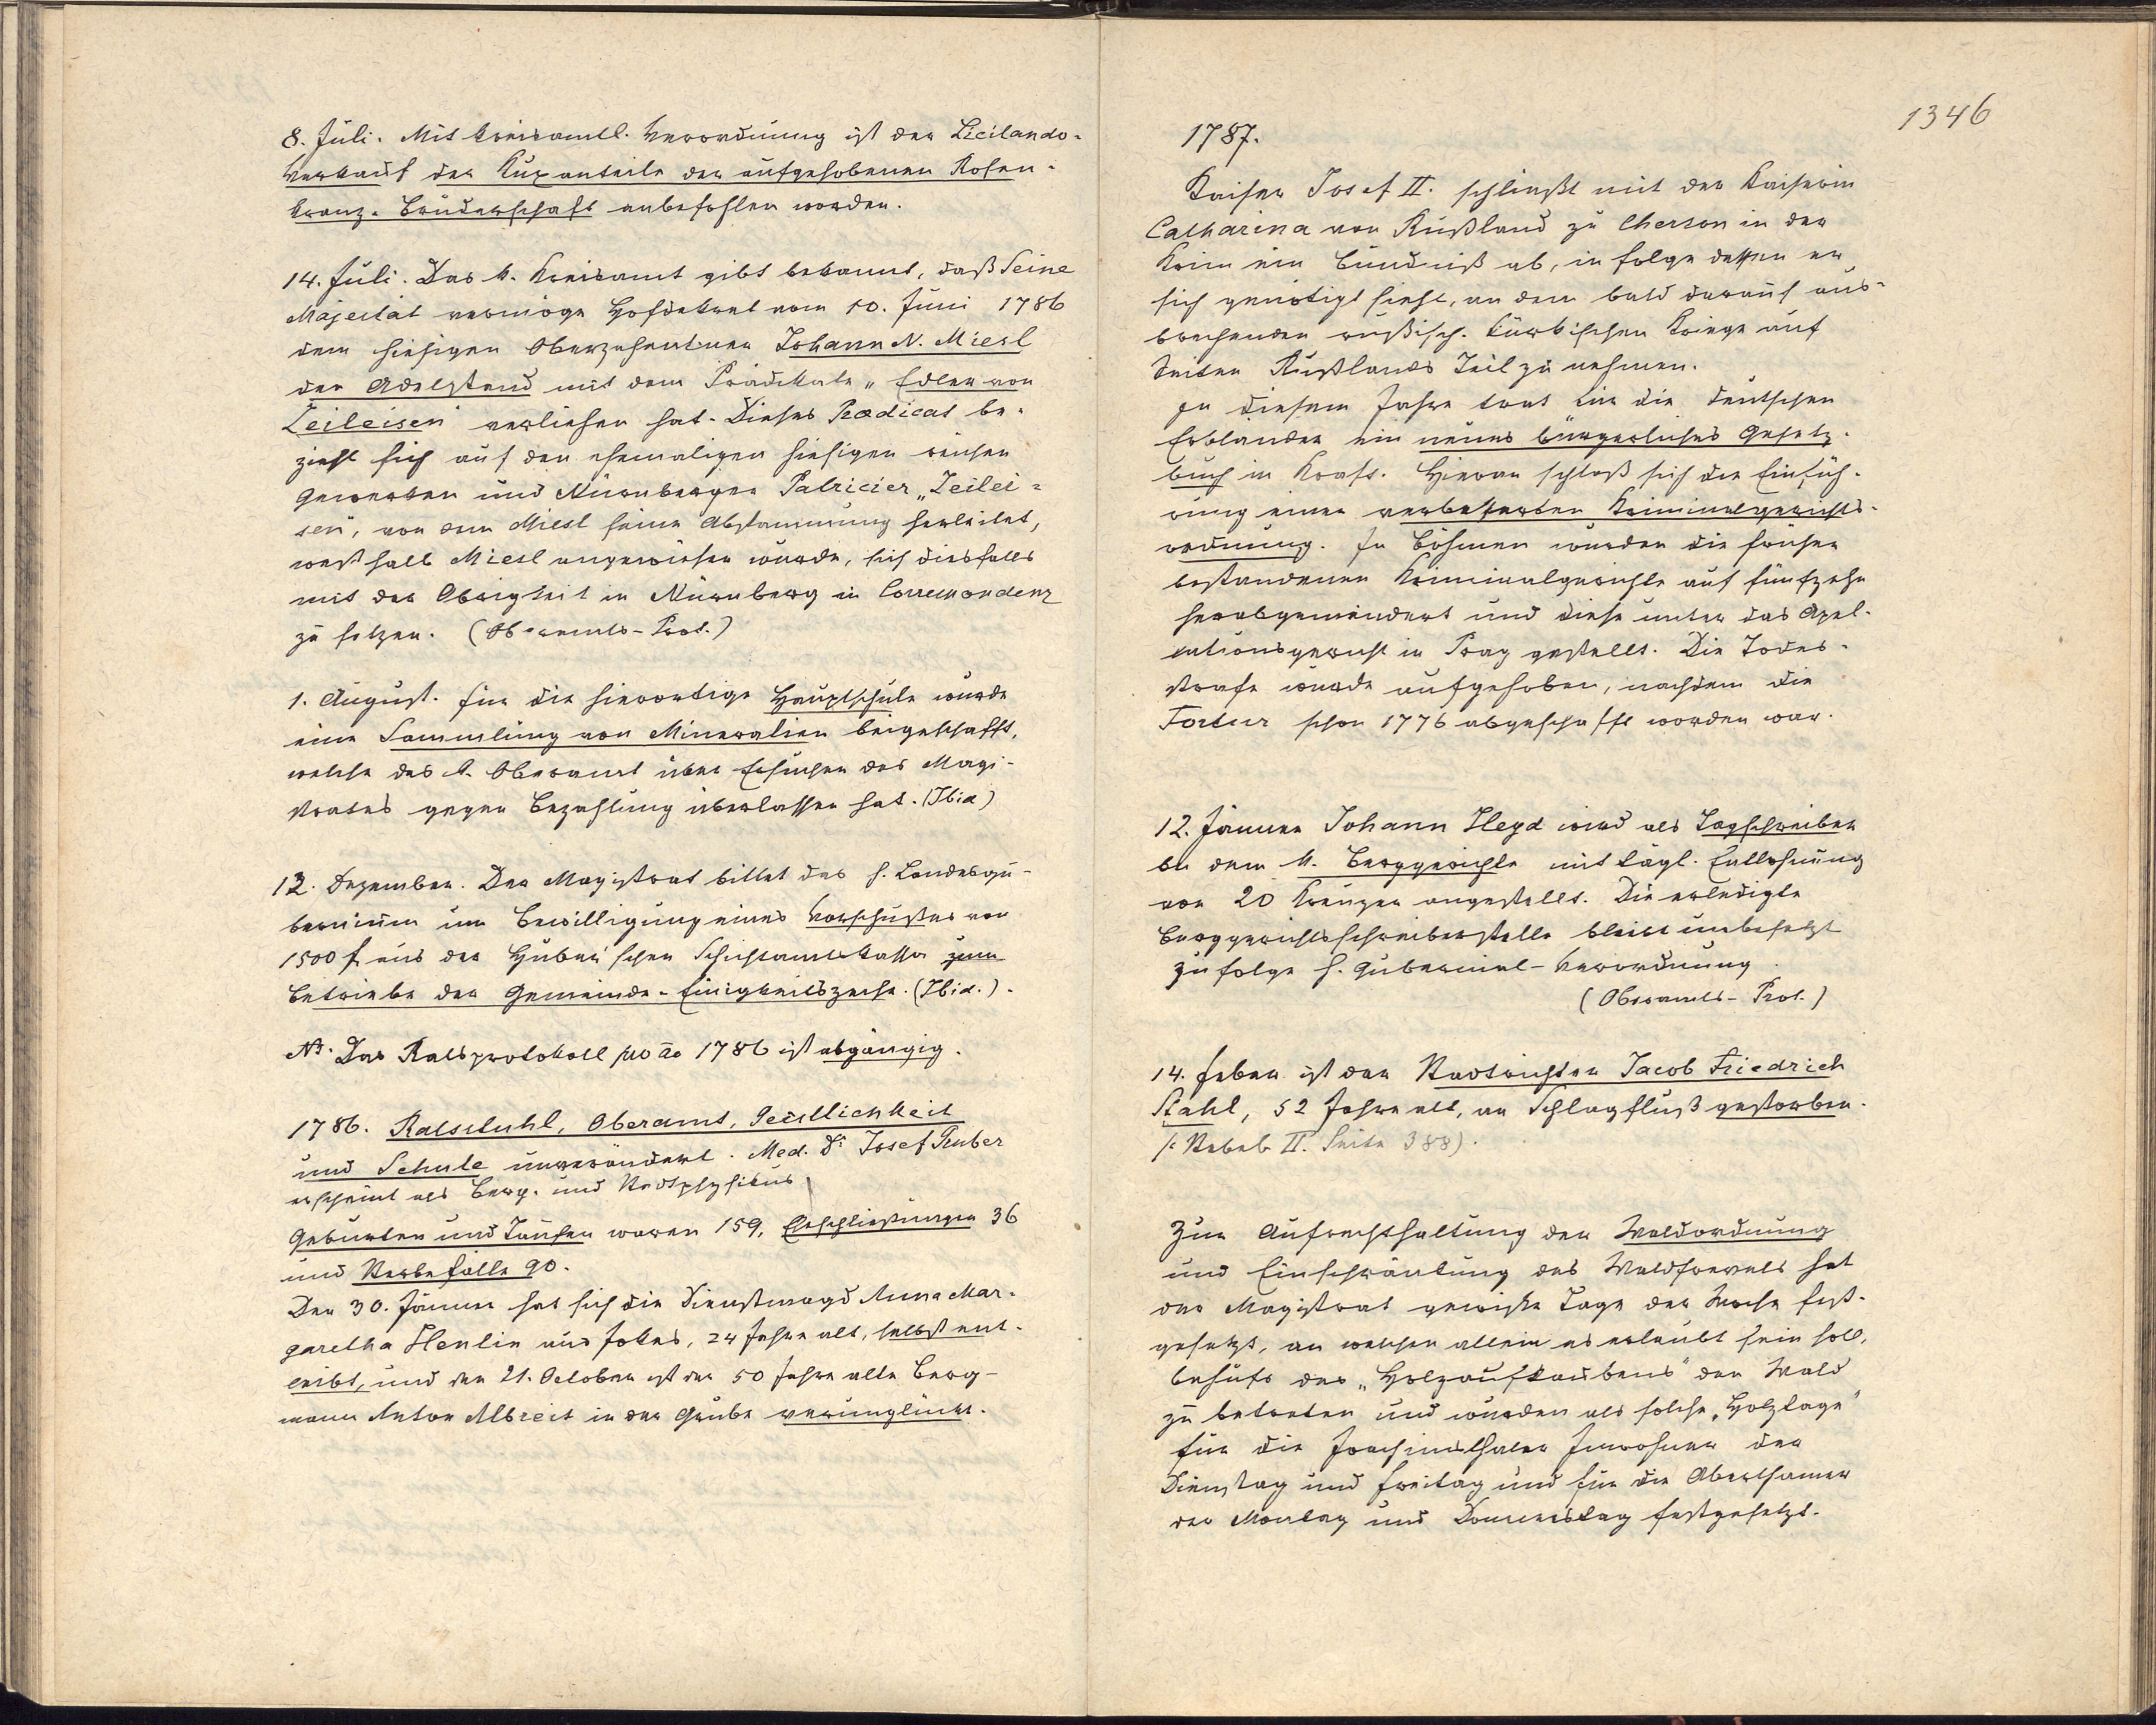 8. Juli. Mit kreisamtl. Verordnung ist der Licitando-
Verkauf der Kuxanteile der aufgehobenen Rosen-
kranz-Bruderschaft anbefohlen worden.
14. Juli. Das k. Kreisamt gibt bekannt, daß Seine
Majestät vermöge Hofdekret vom 10. Juni 1786
dem hiesigen Oberzehentner Johann N. Miesl
den Adelstand mit dem Prädikate „Edler von
Zeileisen" verliehen hat. Dieses Prædicat be-
zieht sich auf den ehemaligen hiesigen reichen
Gewerken und Nürnberger Patricier „Zeilei-
sen", von dem Miesl seine Abstammung herleitet,
weßhalb Miesl angewiesen wurde, sich diesfalls
mit der Obrigkeit in Nürnberg in Correspondenz
zu setzen. (Oberamts-Prot.)
1. August. Für die hierortige Hauptschule wurde
eine Sammlung von Mineralien beigeschafft,
welche das k. Oberamt über Ersuchen des Magi-
strates gegen Bezahlung überlassen hat. (Ibid)
12. Dezember. Der Magistrat bittet das h. Landesgu-
bernium um Bewilligung eines Vorschußes von
1500 f aus der Huber'schen Schichtamtskassa zum
Betriebe der Gemeinde-Einigkeitszeche. (Ibid.).
NB. Das Ratsprotokoll pro ao 1786 ist abgängig.
1786. Ratsstuhl, Oberamt, Geistlichkeit
und Schule unverändert. Med. Dr. Josef Gruber
erscheint als Berg- und Stadtphysikus
Geburten und Taufen waren 159, Eheschließungen 36
und Sterbefälle 90.
Den 30. Jänner hat sich die Dienstmagd Anna Mar-
garetha Henlin aus Jokes, 24 Jahre alt, selbst ent-
leibt, und den 21. October ist der 50 Jahre alte Berg-
mann Anton Albreit in der Grube verunglückt.
1346
1787.
Kaiser Josef II. schließt mit der Kaiserin
Catharina von Rußland zu Cherson in der
Krim ein Bündniß ab, in folge dessen er
sich genötigt sieht, an dem bald darauf aus-
brechenden rußisch-türkischen Kriege auf
Seiten Rußlands Teil zu nehmen.
In diesem Jahre trat für die deutschen
Erbländer ein neues bürgerliches Gesetz-
buch in Kraft. Hieran schloß sich die Einfüh-
rung einer verbesserten Kriminalgerichts-
ordnung. In Böhmen wurden die früher
bestandenen Kriminalgerichte auf fünfzehn
herabgemindert und diese unter das Apel-
lationsgericht in Prag gestellt. Die Todes-
strafe wurde aufgehoben, nachdem die
Tortur schon 1776 abgeschafft worden war.
12. Jänner Johann Heyd wird als Tagschreiber
bei dem k. Berggerichte mit tägl. Entlohnung
von 20 Kreuzer angestellt. Die erledigte
Berggerichtsschreiberstelle bleibt unbesetzt
zufolge h. Gubernial-Verordnung.
(Oberamts-Prot.)
14. Feber ist der Stadtrichter Jacob Friedrich
Stahl, 52 Jahre alt, an Schlagfluß gestorben.
(: Sterbeb. II. Seite 388).
Zur Aufrechthaltung der Waldordnung
und Einschränkung des Waldfrevels hat
der Magistrat gewisse Tage der Woche fest-
gesetzt, an welchen allein es erlaubt sein soll,
behufs des „Holzaufklaubens" den Wald
zu betreten und wurden als solche „Holztage"
für die Joachimsthaler Inwohner der
Dienstag und Freitag und für die Aberthamer
der Montag und Donnerstag festgesetzt.